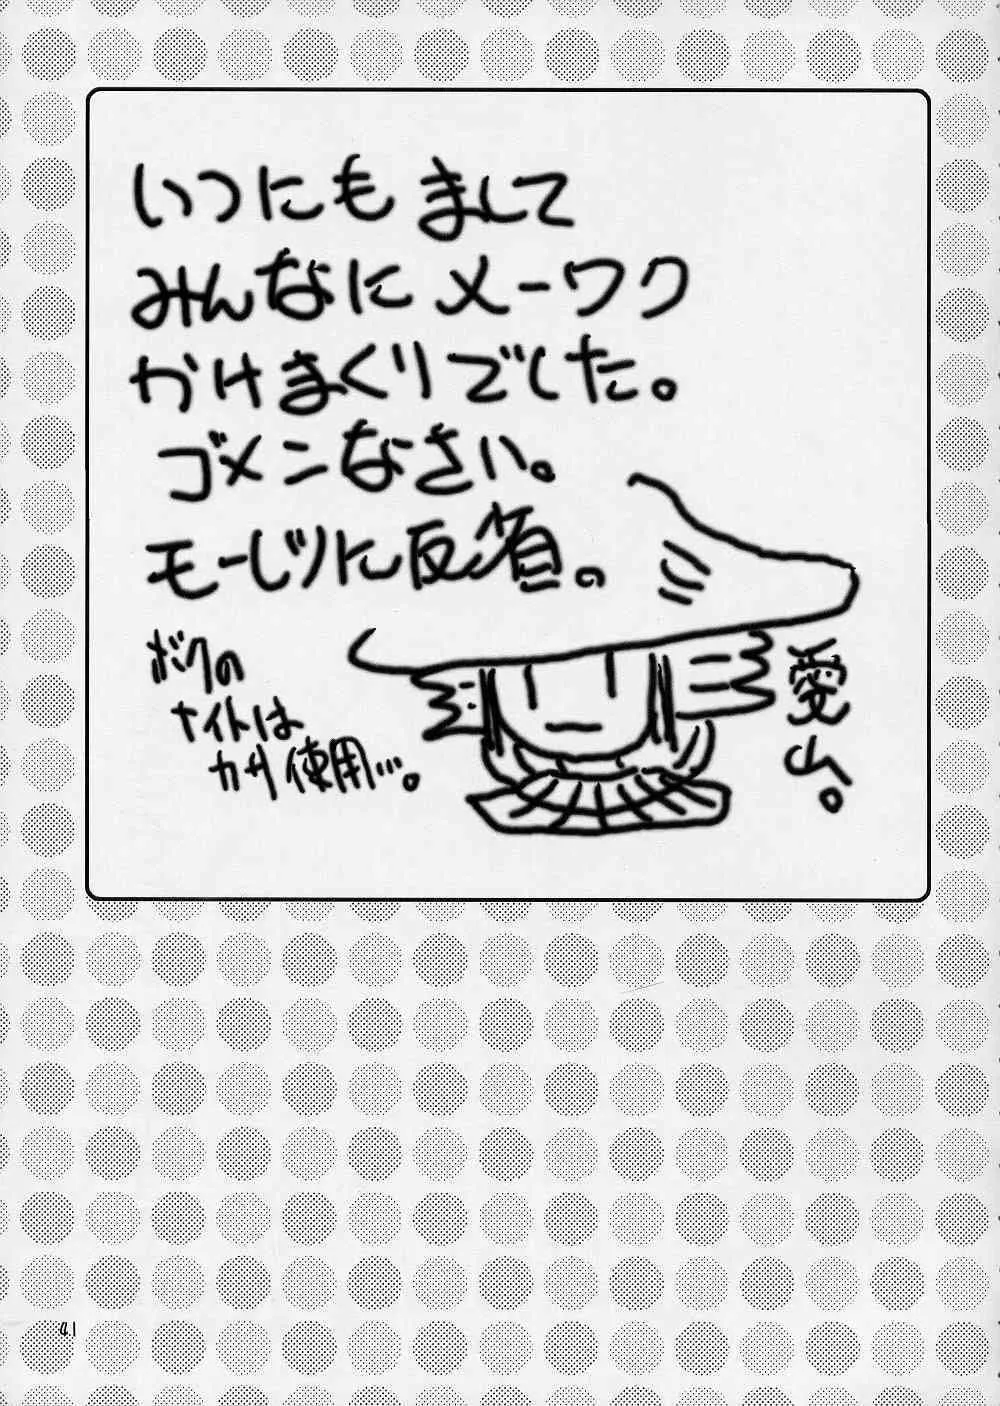 いつにもまして
みんなにメーワク
かけまくりでした。
ゴメンなさい。
モーレツに反省。
ボクの
ナイトは
カサ使用…。
愛
山。
41